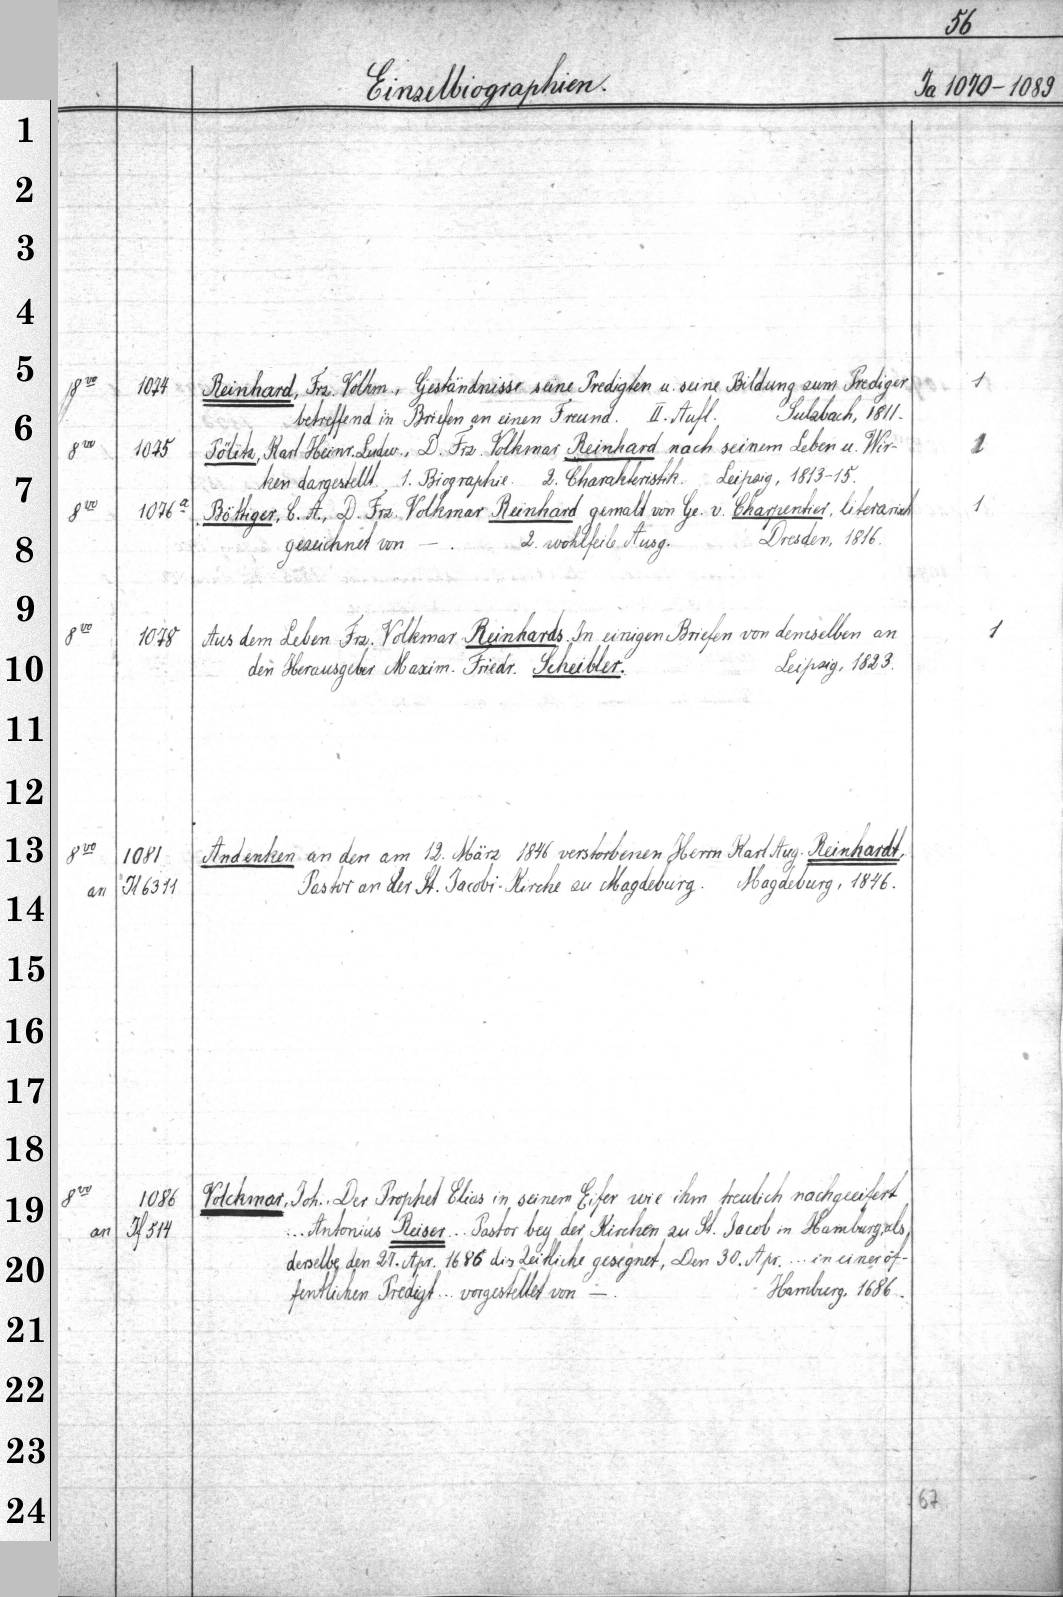 56
Einzelbiographien.
Ia 1070-1089
1
2
3
4
5
8vo 1074 Reinhard, Frz. Volkm., Geständnisse seine Predigten u. seine Bildung zum Prediger 1
betreffend in Briefen an einen Freund. II. Aufl. Sulzbach, 1811.
6
8vo 1075 Pölitz, Karl Heinr. Ludw., D. Frz. Volkmar Reinhard nach seinem Leben u. Wir- 1
ken dargestellt. 1. Biographie. 2. Charakteristik. Leipzig, 1813-15.
7
8vo 1076a Böttiger, C. A., D. Frz. Volkmar Reinhard gemalt von Ge. v. Charpentier, literarisch 1
gezeichnet von — . 2. wohlfeile Ausg. Dresden, 1816.
8
9
8vo 1078 Aus dem Leben Frz. Volkmar Reinhards. In einigen Briefen von demselben an 1
den Herausgeber Maxim. Friedr. Scheibler. Leipzig, 1823.
10
11
12
13
8vo 1081 Andenken an den am 12. März 1846 verstorbenen Herrn Karl Aug. Reinhardt,
an 6311 Pastor an der St. Jacobi-Kirche zu Magdeburg. Magdeburg, 1846.
14
15
16
17
18
8vo 1086 Volckmar, Joh., Der Prophet Elias in seinem Eifer wie ihm treulich nachgeeifert
19
an If 514 ... Antonius Reiser ... Pastor bey der Kirchen zu St. Jacob in Hamburg, als
derselbe den 27. Apr. 1686 dis Zeitliche gesegnet, Den 30. Apr. ... in einer öf-
20
fentlichen Predigt ... vorgestellet von — . Hamburg, 1686.
21
22
23
67
24